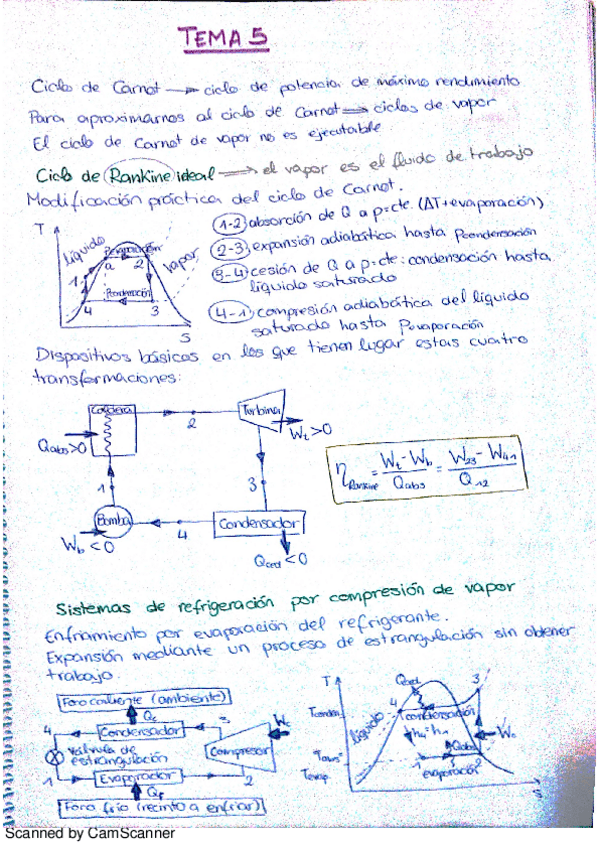 TEMA 5
Ciclo de Carnot → ciclo de potencia de máximo rendimiento
Para aproximarnos al ciclo de Carnot → ciclos de vapor
El ciclo de Carnot de vapor no es ejecutable
Ciclo de Rankine ideal → el vapor es el fluido de trabajo
Modificación práctica del ciclo de Carnot.
1-2 absorción de Q a p=cte. (ΔT+evaporación)
2-3 expansión adiabática hasta Pcondensación
3-4 cesión de Q a p=cte: condensación hasta
líquido saturado
4-1 compresión adiabática del líquido
saturado hasta Pevaporación
T
líquido
Pevaporación
vapor
1
a
2
Pcondensación
4
3
S
Dispositivos básicos en los que tienen lugar estas cuatro
transformaciones:
Caldera
2
Turbina
Wt>0
Qabs>0
1
3
Bomba
4
Condensador
Wb<0
Qced<0
ηRankine = Wt-Wb / Qabs = W23-W41 / Q12
Sistemas de refrigeración por compresión de vapor
Enfriamiento por evaporación del refrigerante.
Expansión mediante un proceso de estrangulación sin obtener
trabajo.
Foco caliente (ambiente)
Qc
4
Condensador
3
Wc
Válvula de
estrangulación
Compresor
1
Evaporador
2
Qf
Foco frío (recinto a enfriar)
T
Qced
3
4
Tconden.
Tcondensación
líquido
h4=h1
Wc
Qabs
Tevap.
1
evaporación
2
S
Scanned by CamScanner